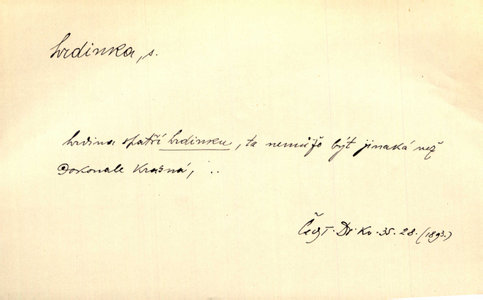 hrdinka, s.
hrdina spatří hrdinku, ta nemůže být jinaká než
dokonale krásná, ..
Dr. Kv. 35. 28. (1893.)